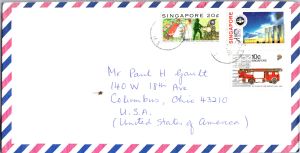 SINGAPORE 20¢
SINGAPORE
10c
Mr Paul H Gault
140 W 18th Ave
Columbus, Ohio 43210
U.S.A.
(United States of America)